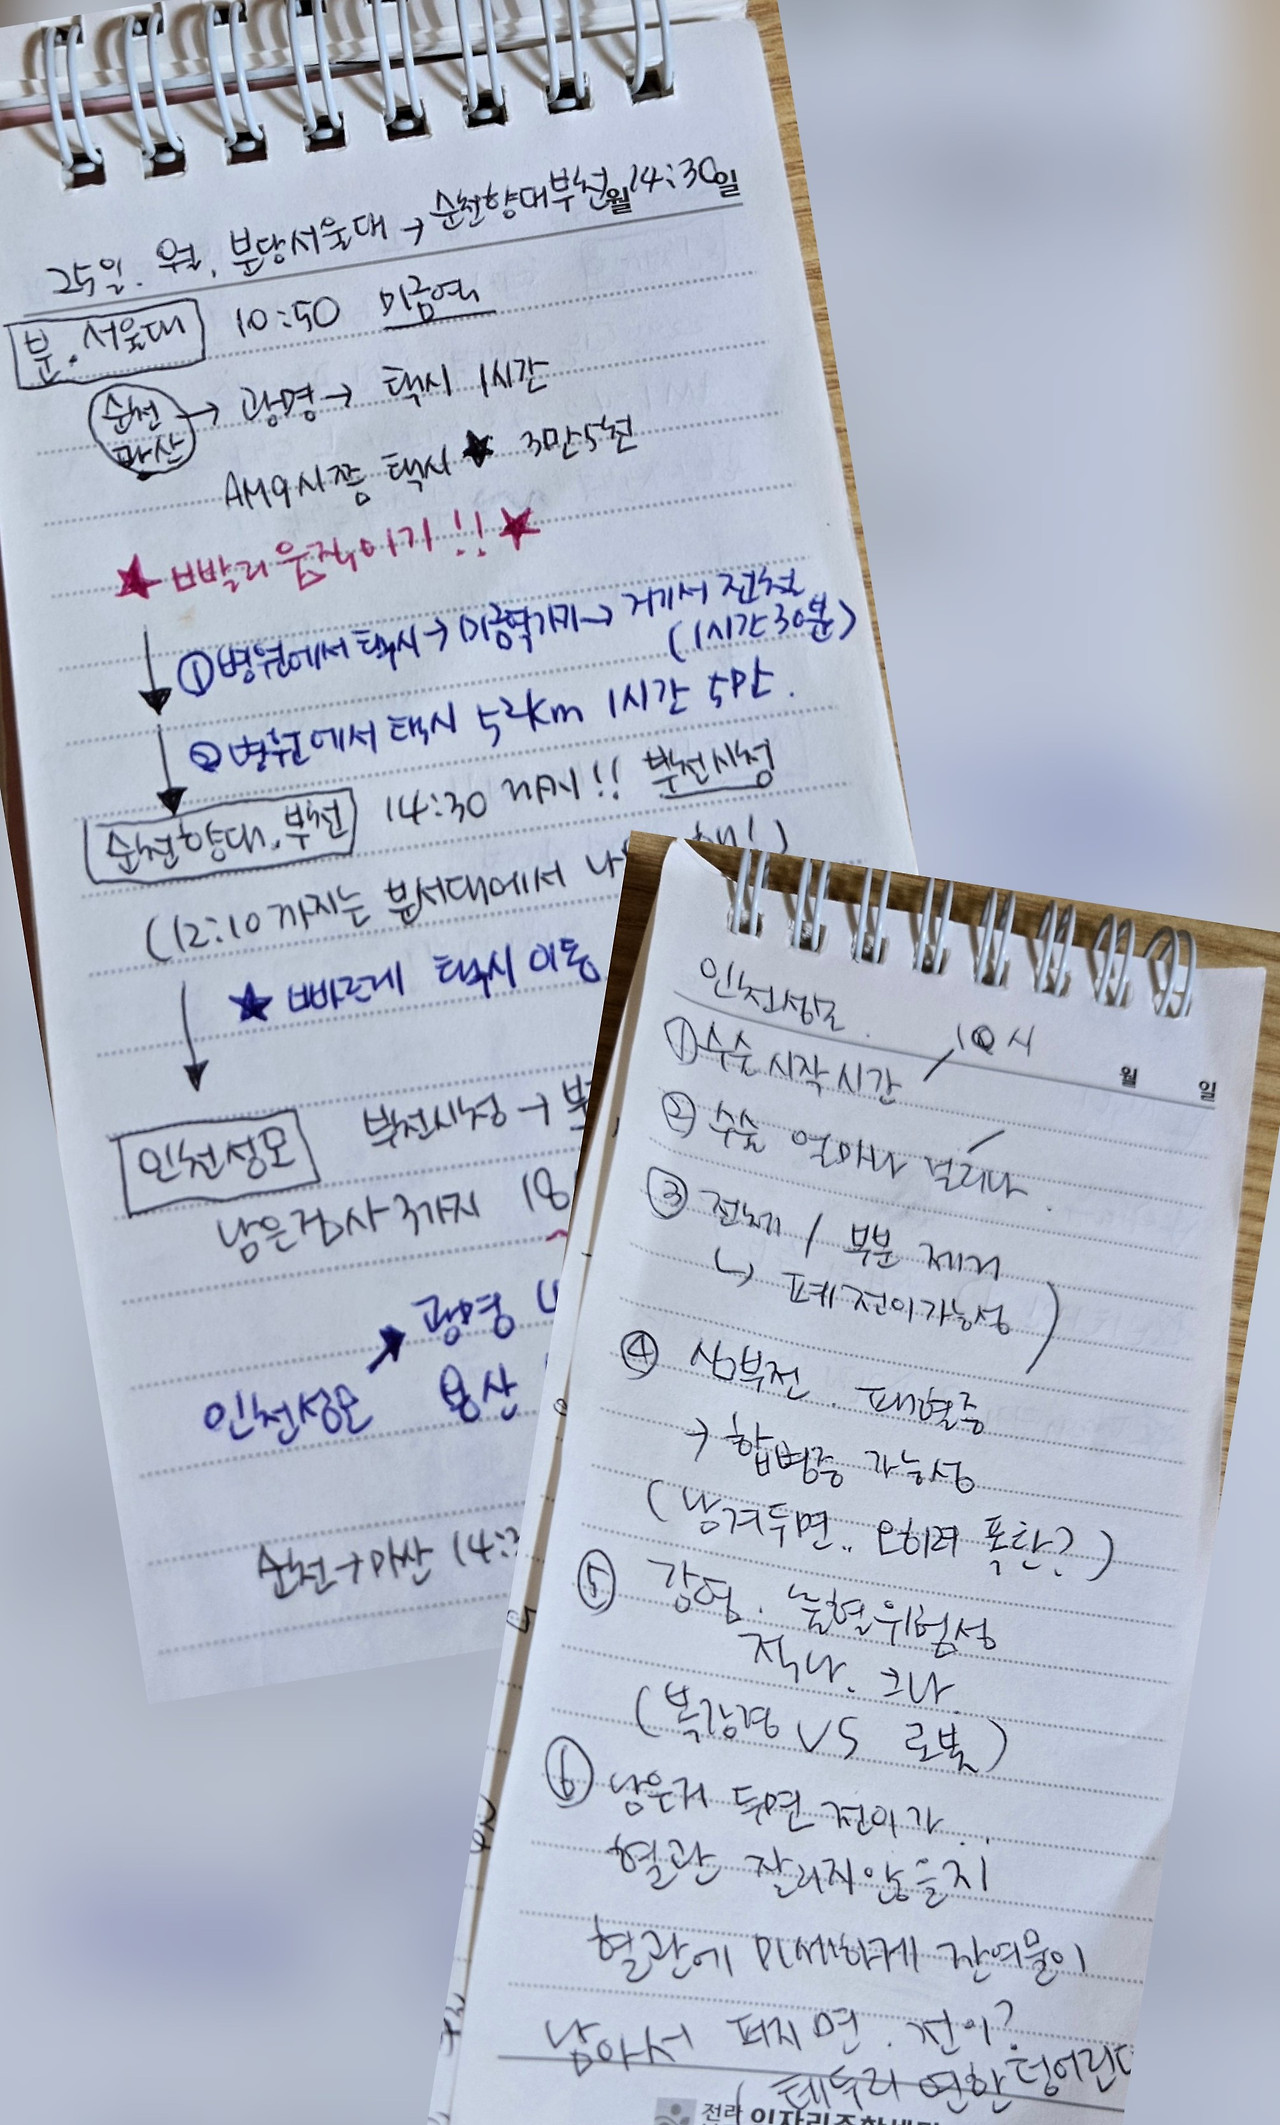 월 일
25일. 월. 분당서울대 → 순천향대부천 14:30
분.서울대 10:50 미금역
순천 → 광명 → 택시 1시간
마산
AM9시쯤 택시 ★ 3만5천
★ 빠빨리 움직이기!! ★
① 병원에서 택시 → 미금역가기 → 거기서 전철
(1시간 30분)
② 병원에서 택시 52km 1시간 5만.
순천향대.부천 14:30 까지!! 부천시청
(12:10까지는 분서대에서
★ 빠르게 택시 이동
인천성모 부천시청 →
남은검사 3가지 18
광명
인천성모 용산
순천 → 마산 14:3
월 일
인천성모. 10시
① 수술 시작시간
② 수술 얼마나 걸리나.
③ 전체 / 부분 제거
↳ 폐전이가능성
④ 심부전. 패혈증
→ 합병증 가능성
(남겨두면.. 오히려 폭탄?)
⑤ 감염. 출혈위험성
적나. 크나.
(복강경 VS 로봇)
⑥ 남은거 두면 전이가...
혈관 잘리지않을지
혈관에 미세하게 잔여물이
남아서 퍼지면. 전이?
테두리 연한 덩어린
전라